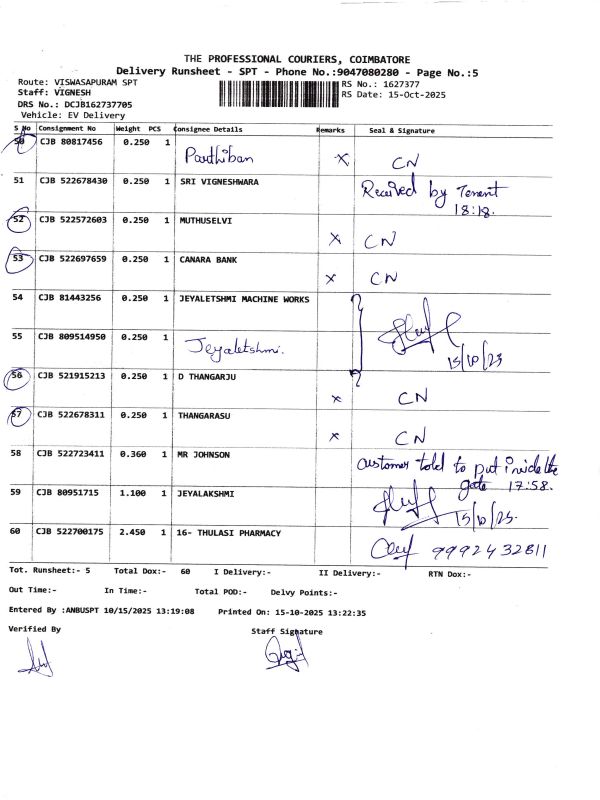 THE PROFESSIONAL COURIERS, COIMBATORE
Delivery Runsheet - SPT - Phone No.:9047080280 - Page No.:5
Route: VISWASAPURAM SPT
Staff: VIGNESH
DRS No.: DCJB162737705
Vehicle: EV Delivery
RS No.: 1627377
RS Date: 15-Oct-2025
S No Consignment No Weight PCS Consignee Details Remarks Seal & Signature
50 CJB 80817456 0.250 1 Parthiban x CN
51 CJB 522678430 0.250 1 SRI VIGNESHWARA Received by Tenent
18:18.
52 CJB 522572603 0.250 1 MUTHUSELVI x CN
53 CJB 522697659 0.250 1 CANARA BANK x CN
54 CJB 81443256 0.250 1 JEYALETSHMI MACHINE WORKS
55 CJB 809514950 0.250 1 Jeyaletshmi. 15/10/25
56 CJB 521915213 0.250 1 D THANGARJU x CN
57 CJB 522678311 0.250 1 THANGARASU x CN
58 CJB 522723411 0.360 1 MR JOHNSON customer told to put inside the
gate 17:58.
59 CJB 80951715 1.100 1 JEYALAKSHMI 15/10/25.
60 CJB 522700175 2.450 1 16- THULASI PHARMACY 9992432811
Tot. Runsheet:- 5 Total Dox:- 60 I Delivery:- II Delivery:- RTN Dox:-
Out Time:- In Time:- Total POD:- Delvy Points:-
Entered By :ANBUSPT 10/15/2025 13:19:08 Printed On: 15-10-2025 13:22:35
Verified By Staff Signature